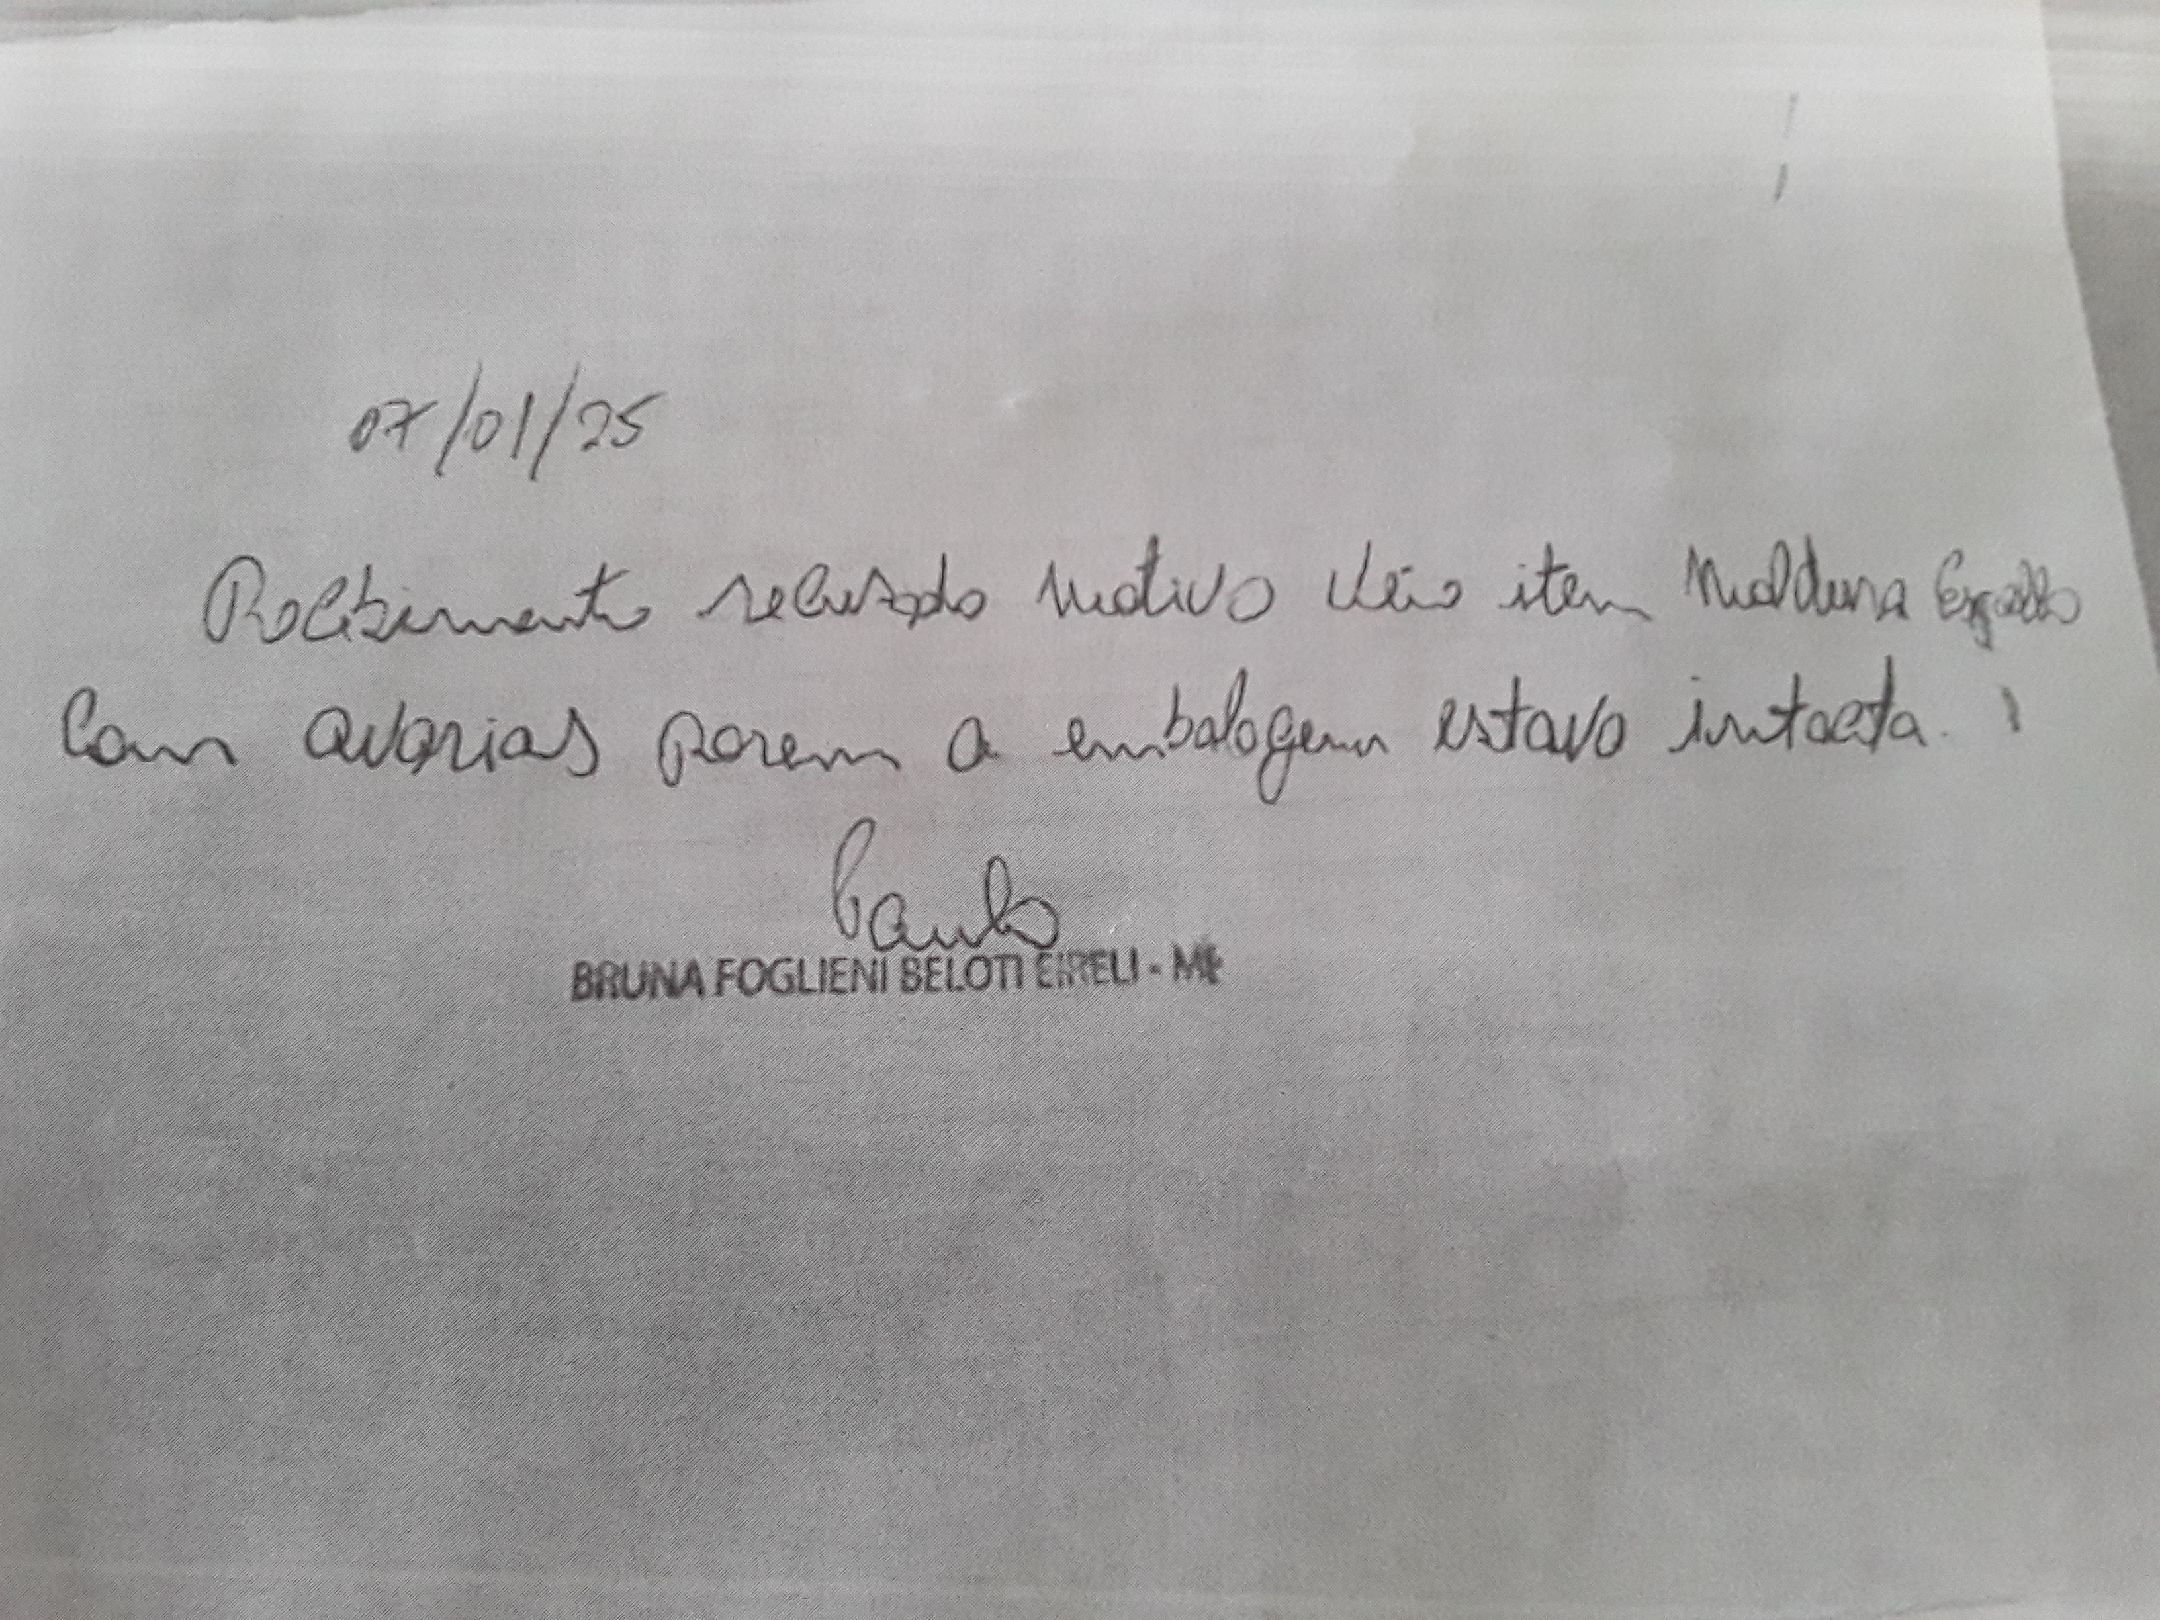 07/01/25
Recebimento recusado motivo veio item Moldura
com avarias porem a embalagem estava intacta.
Paulo
BRUNA FOGLIENI BELOTI EIRELI - ME